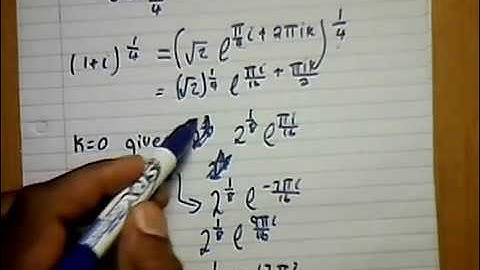 π/4
(1+i)^{1/4} = (√2 e^{π/4 i + 2πik})^{1/4}
= (√2)^{1/4} e^{πi/16 + πik/2}
k=0 give 2^{1/8} e^{πi/16}
2^{1/8} e^{-7πi/16}
2^{1/8} e^{9πi/16}